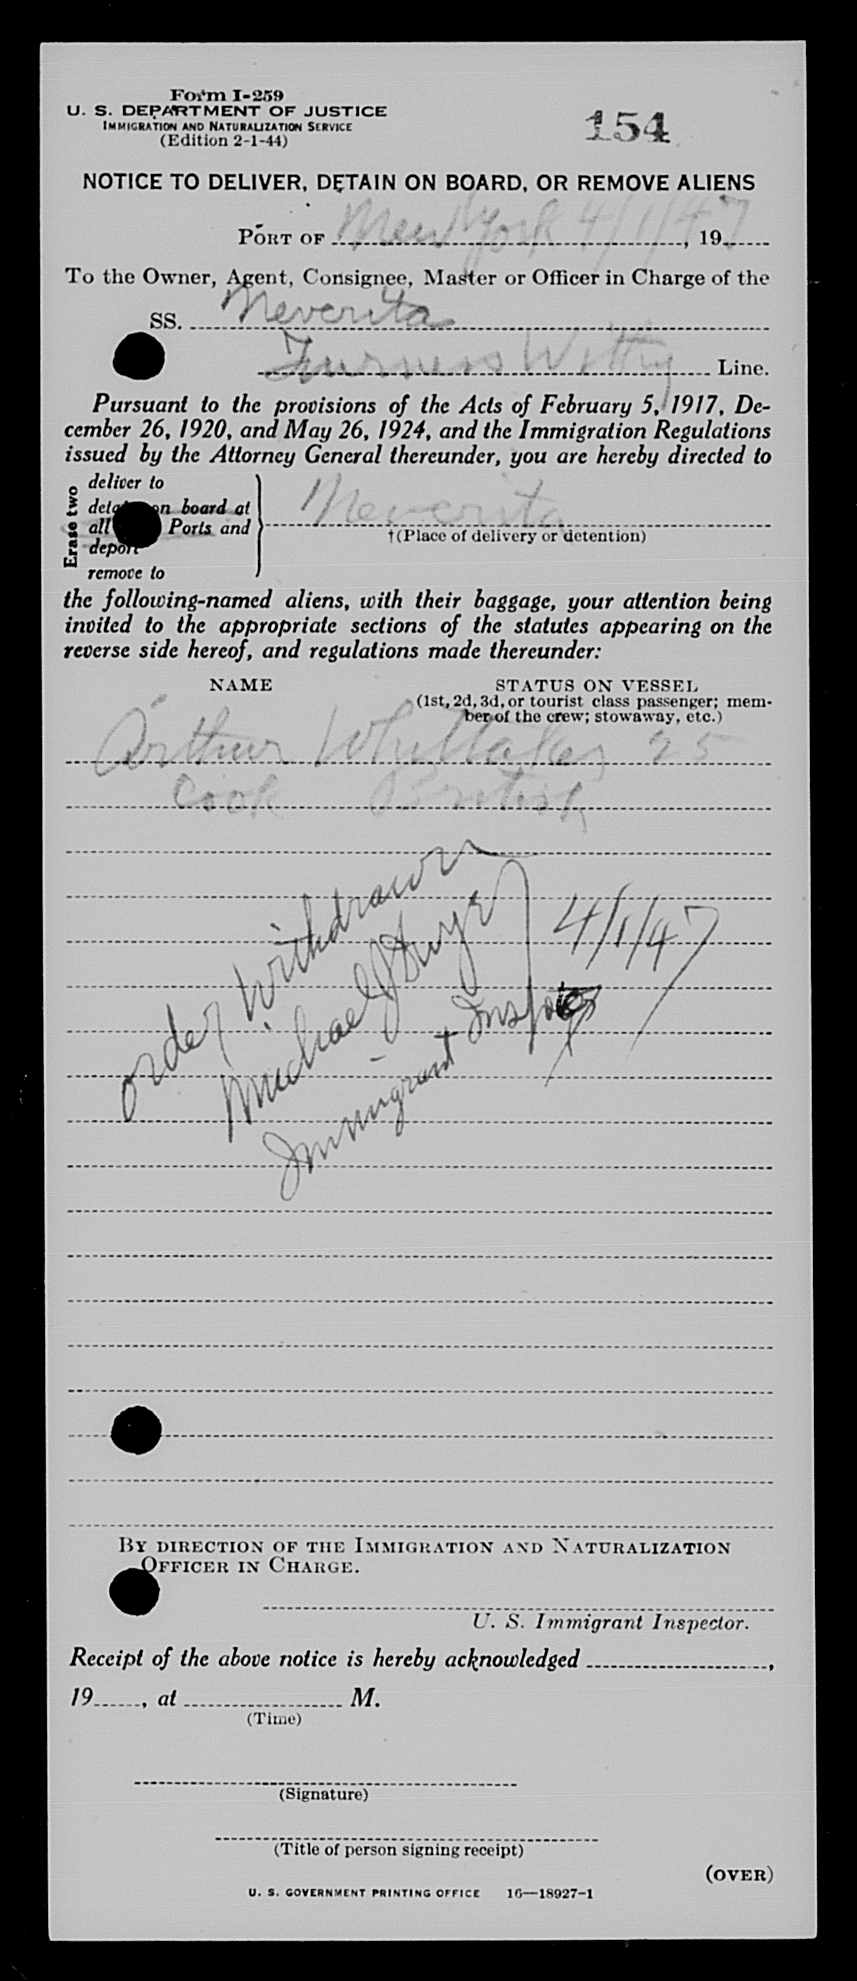 Form I-259
U. S. DEPARTMENT OF JUSTICE
IMMIGRATION AND NATURALIZATION SERVICE
(Edition 2-1-44)
154
NOTICE TO DELIVER, DETAIN ON BOARD, OR REMOVE ALIENS
PORT OF New York 4/1/47, 19
To the Owner, Agent, Consignee, Master or Officer in Charge of the
SS. Neverita
Furness Withy Line.
Pursuant to the provisions of the Acts of February 5, 1917, De-
cember 26, 1920, and May 26, 1924, and the Immigration Regulations
issued by the Attorney General thereunder, you are hereby directed to
Erase two
deliver to
detain on board at
all Ports and
deport
remove to
Neverita
†(Place of delivery or detention)
the following-named aliens, with their baggage, your attention being
invited to the appropriate sections of the statutes appearing on the
reverse side hereof, and regulations made thereunder:
NAME STATUS ON VESSEL
(1st, 2d, 3d, or tourist class passenger; mem-
ber of the crew; stowaway, etc.)
Arthur Whittaker 25
Cook British
order withdrawn
Michael J Dwyer 4/1/47
Immigrant Inspector
BY DIRECTION OF THE IMMIGRATION AND NATURALIZATION
OFFICER IN CHARGE.
U. S. Immigrant Inspector.
Receipt of the above notice is hereby acknowledged ,
19 , at M.
(Time)
(Signature)
(Title of person signing receipt)
(OVER)
U. S. GOVERNMENT PRINTING OFFICE 16—18927-1